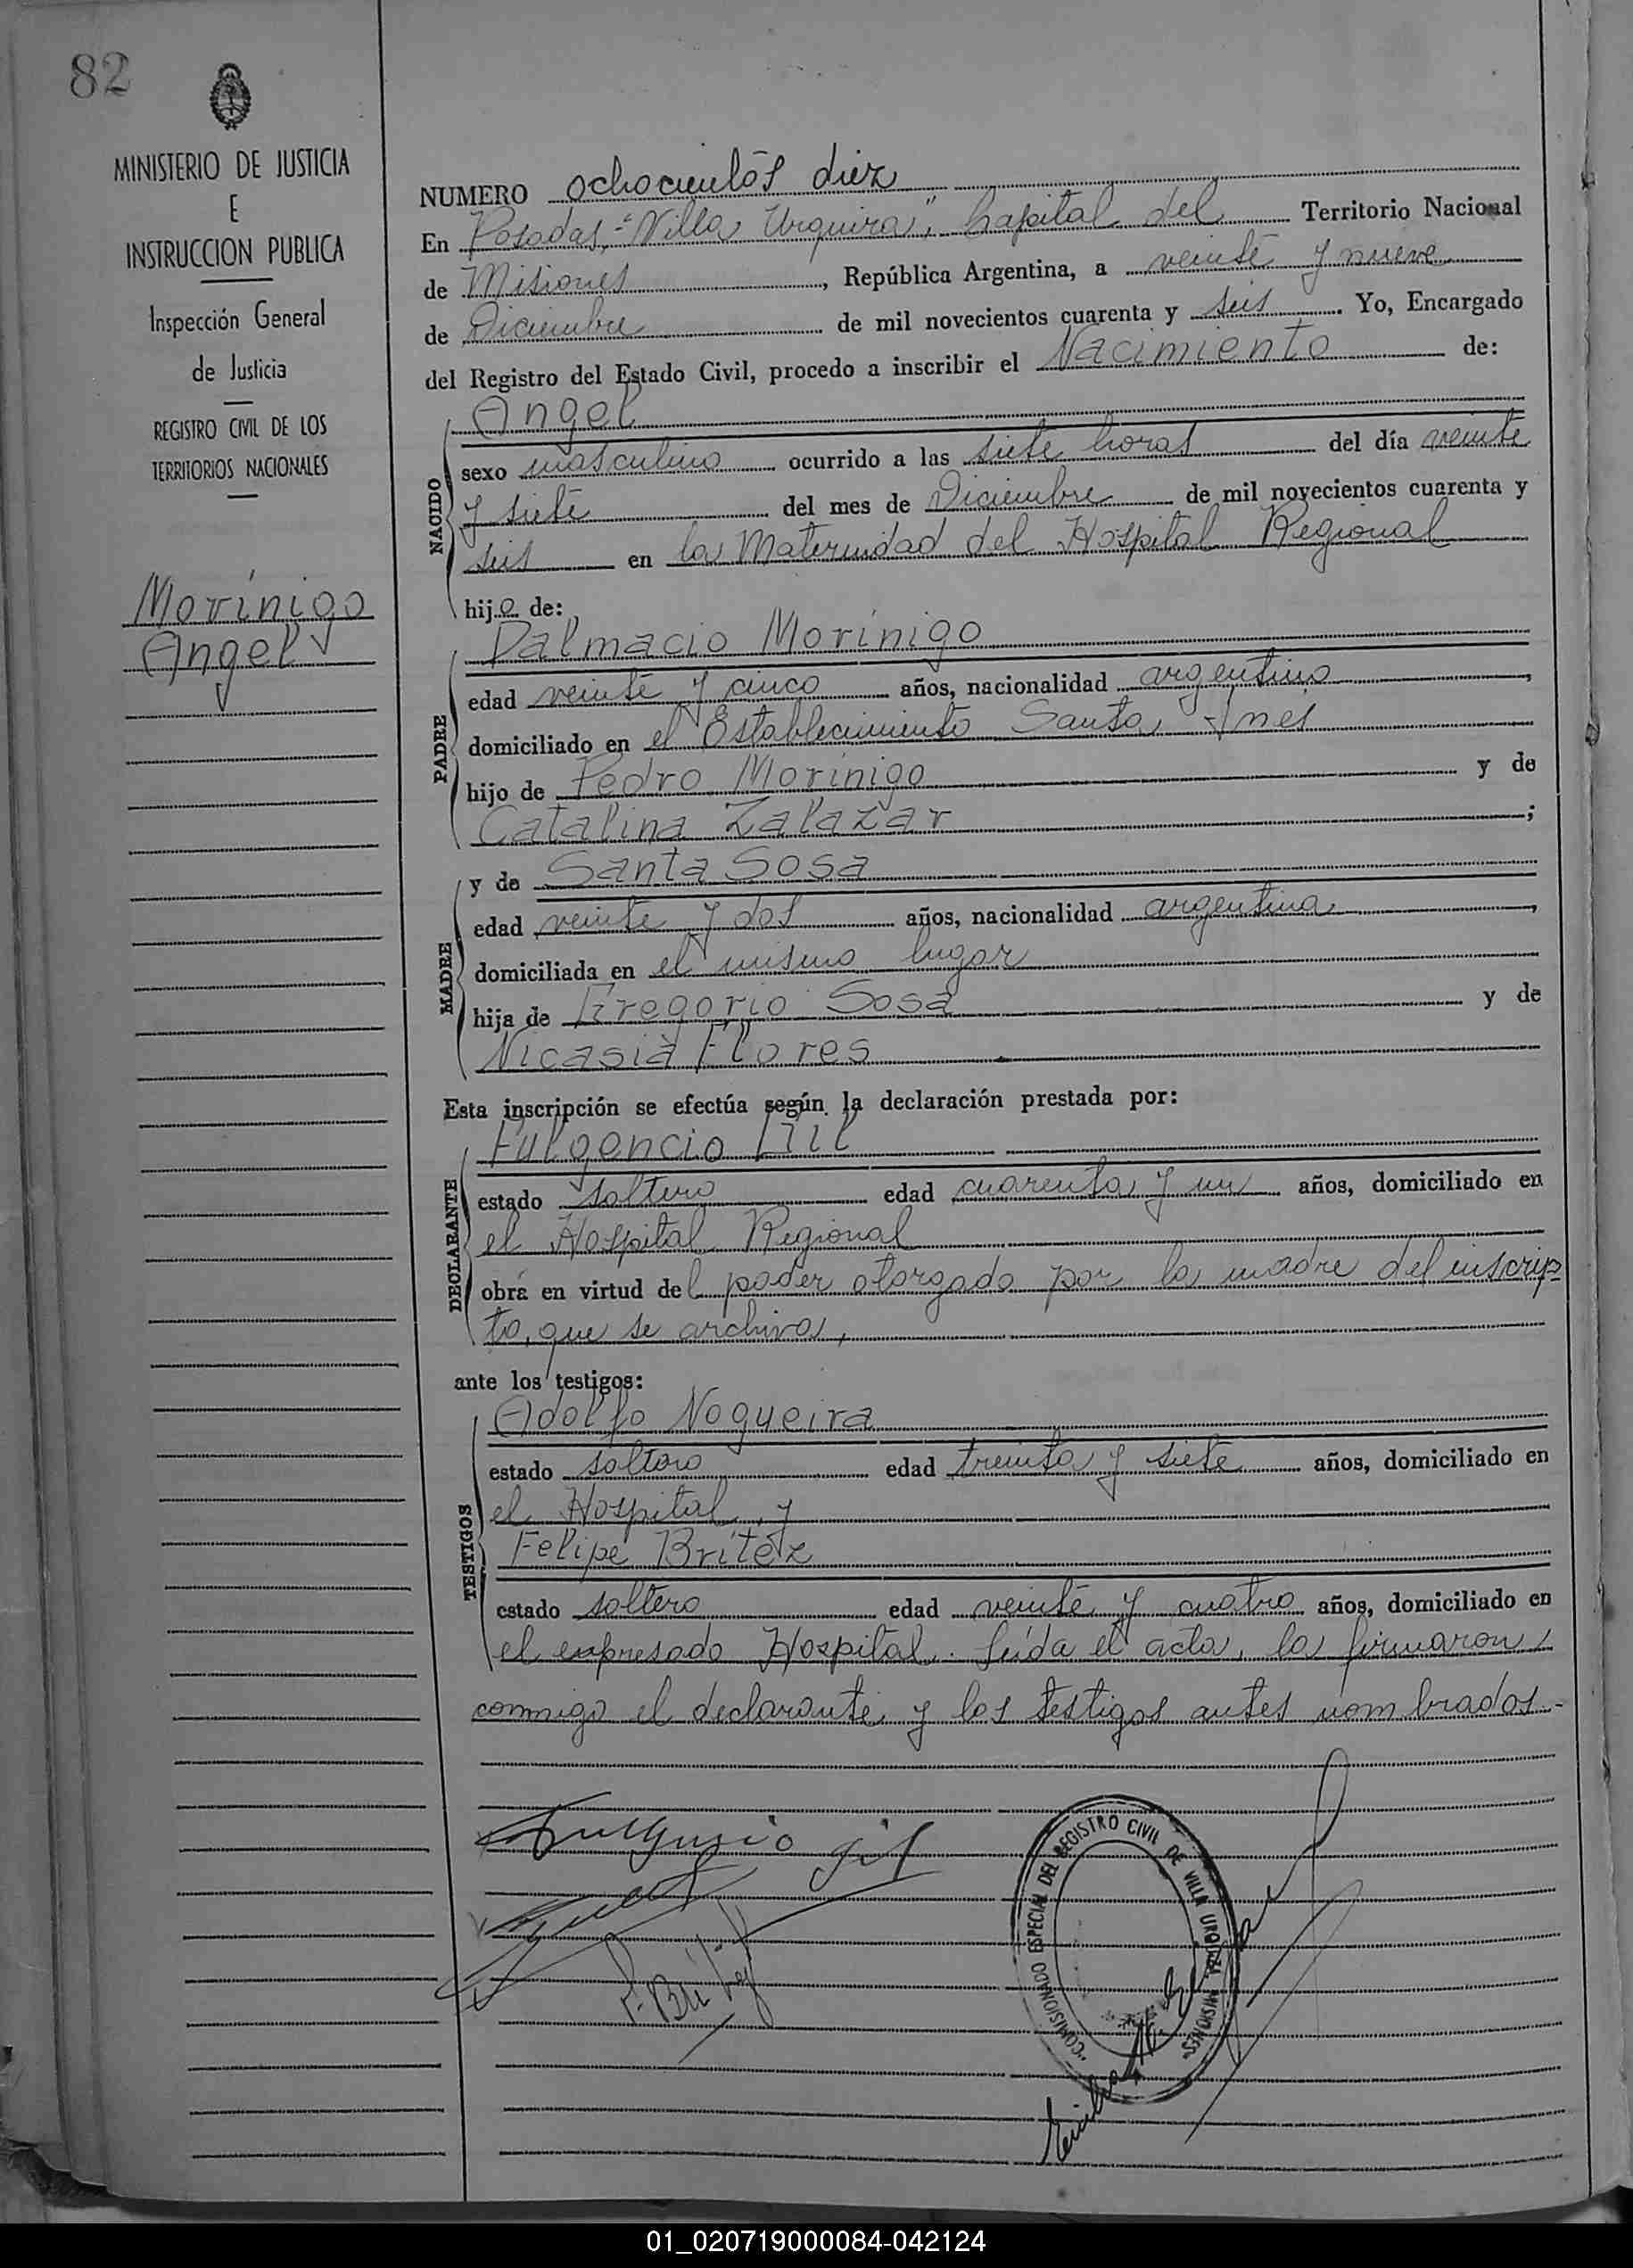 82
MINISTERIO DE JUSTICIA
E
INSTRUCCION PUBLICA
Inspección General
de Justicia
REGISTRO CIVIL DE LOS
TERRITORIOS NACIONALES
Morínigo
Angel
NUMERO ochocientos diez
En Posadas, "Villa Urquiza", Capital del Territorio Nacional
de Misiones, República Argentina, a veinte y nueve
de Diciembre de mil novecientos cuarenta y seis. Yo, Encargado
del Registro del Estado Civil, procedo a inscribir el Nacimiento de:
NACIDO
Angel
sexo masculino ocurrido a las siete horas del día veinte
y siete del mes de Diciembre de mil novecientos cuarenta y
seis en la Maternidad del Hospital Regional
hijo de:
PADRE
Dalmacio Morínigo
edad veinte y cinco años, nacionalidad argentino,
domiciliado en el Establecimiento Santa Ines
hijo de Pedro Morínigo y de
Catalina Zalazar;
MADRE
y de Santa Sosa
edad veinte y dos años, nacionalidad argentina,
domiciliada en el mismo lugar
hija de Gregorio Sosa y de
Nicasia Flores
Esta inscripción se efectúa según la declaración prestada por:
DECLARANTE
Fulgencio Gil
estado soltero edad cuarenta y un años, domiciliado en
el Hospital Regional
obra en virtud del poder otorgado por la madre del inscrip=
to, que se archiva,
ante los testigos:
TESTIGOS
Adolfo Nogueira
estado soltero edad treinta y siete años, domiciliado en
el Hospital, y
Felipe Britez
estado soltero edad veinte y cuatro años, domiciliado en
el expresado Hospital. Leída el acta, la firmaron
conmigo el declarante y los testigos antes nombrados.-
Fulgencio Gil
F. Britez
"COMISIONADO ESPECIAL DEL REGISTRO CIVIL DE VILLA URQUIZA MISIONES"
01_020719000084-042124